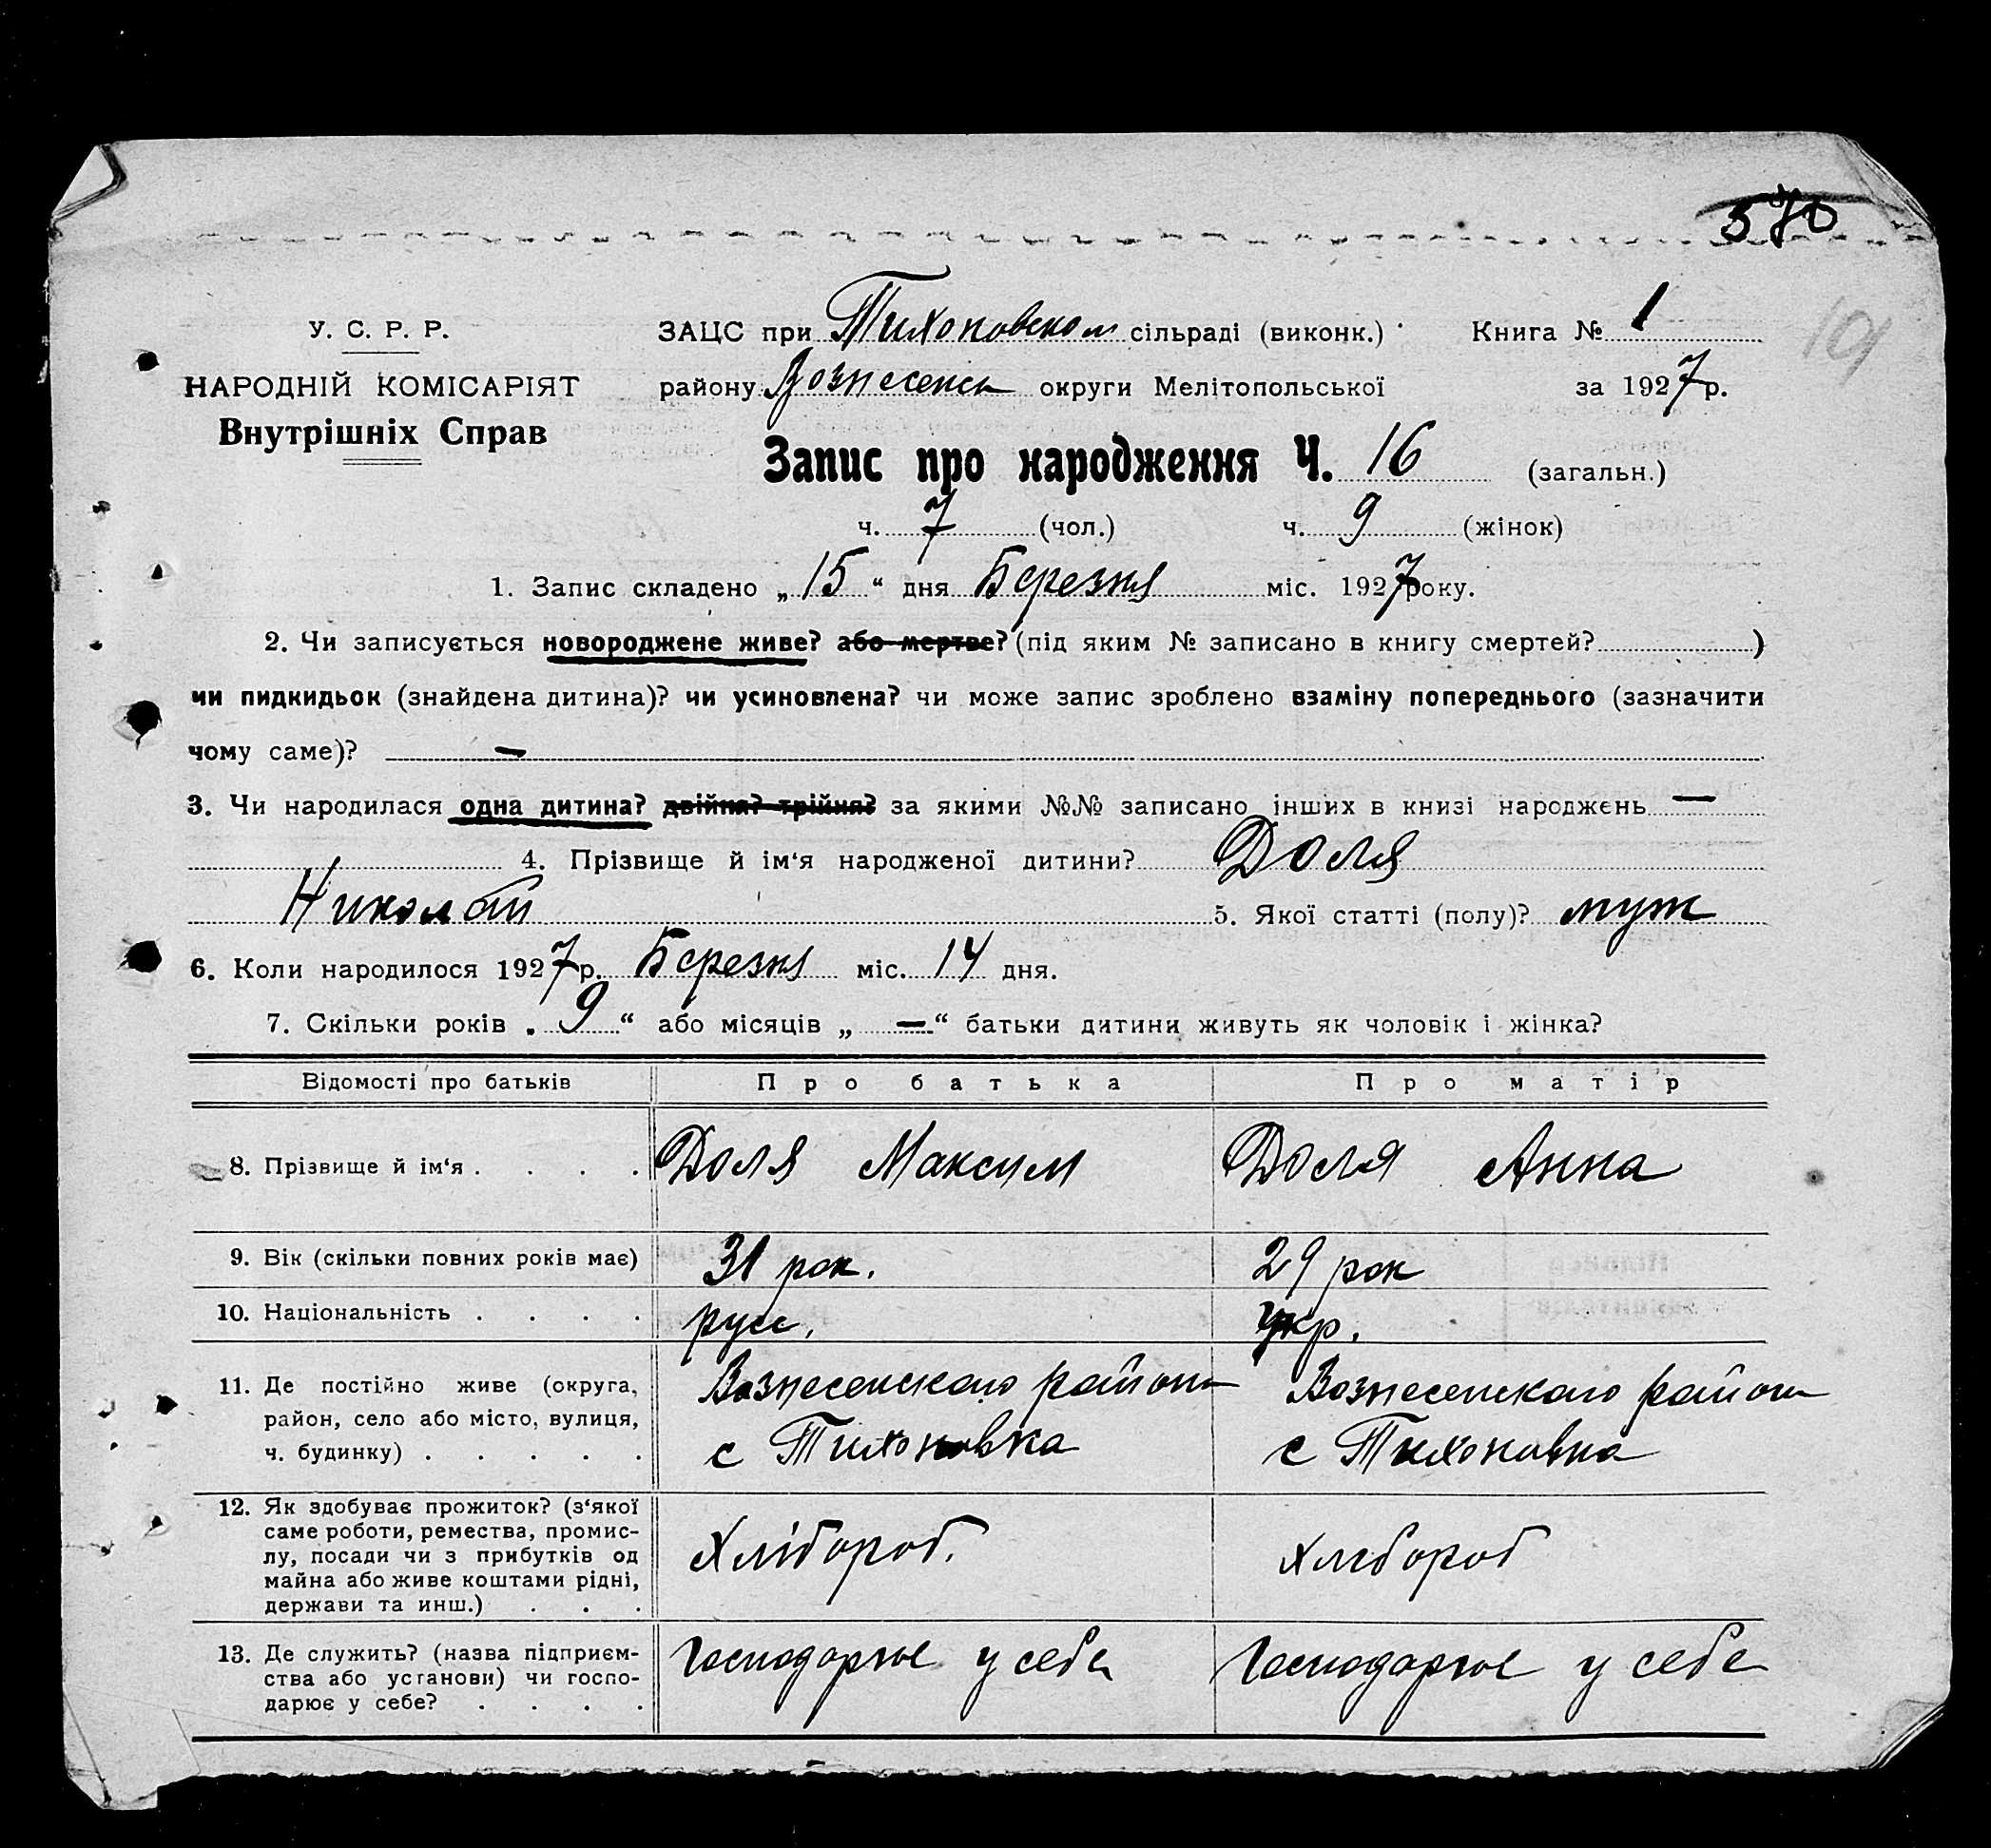 570
У. С. Р. Р. ЗАЦС при Тихоновском сільраді (виконк.) Книга № 1
101
НАРОДНІЙ КОМІСАРІЯТ району Вознесенск округи Мелітопольської за 1927 р.
Внутрішніх Справ
Запис про народження Ч. 16 (загальн.)
ч. 7 (чол.) ч. 9 (жінок)
1. Запис складено „15“ дня Березня міс. 1927 року.
2. Чи записується новороджене живе? або мертве? (під яким № записано в книгу смертей? )
чи пидкидьок (знайдена дитина)? чи усиновлена? чи може запис зроблено взаміну попереднього (зазначити
чому саме)? —
3. Чи народилася одна дитина? двійня? трійня? за якими №№ записано інших в книзі народжень —
4. Прізвище й ім‘я народженої дитини? Доля
Николай 5. Якої статті (полу)? муж
6. Коли народилося 1927 р. Березня міс. 14 дня.
7. Скільки років „9“ або місяців „—“ батьки дитини живуть як чоловік і жінка?
Відомості про батьків Про батька Про матір
8. Прізвище й ім‘я . . . . Доля Максим Доля Анна
9. Вік (скільки повних років має) 31 рок. 29 рок
10. Національність . . . . русс. укр.
11. Де постійно живе (округа, Вознесенского район Вознесенского район
район, село або місто, вулиця,
ч. будинку) . . . . . с Тихоновка с Тихоновка
12. Як здобуває прожиток? (з‘якої
саме роботи, ремества, промис-
лу, посади чи з прибутків од Хлібороб. хлібороб
майна або живе коштами рідні,
держави та инш.) . . .
13. Де служить? (назва підприєм- Господарює у себе Господарює у себе
ства або установи) чи госпо-
дарює у себе? . . . .